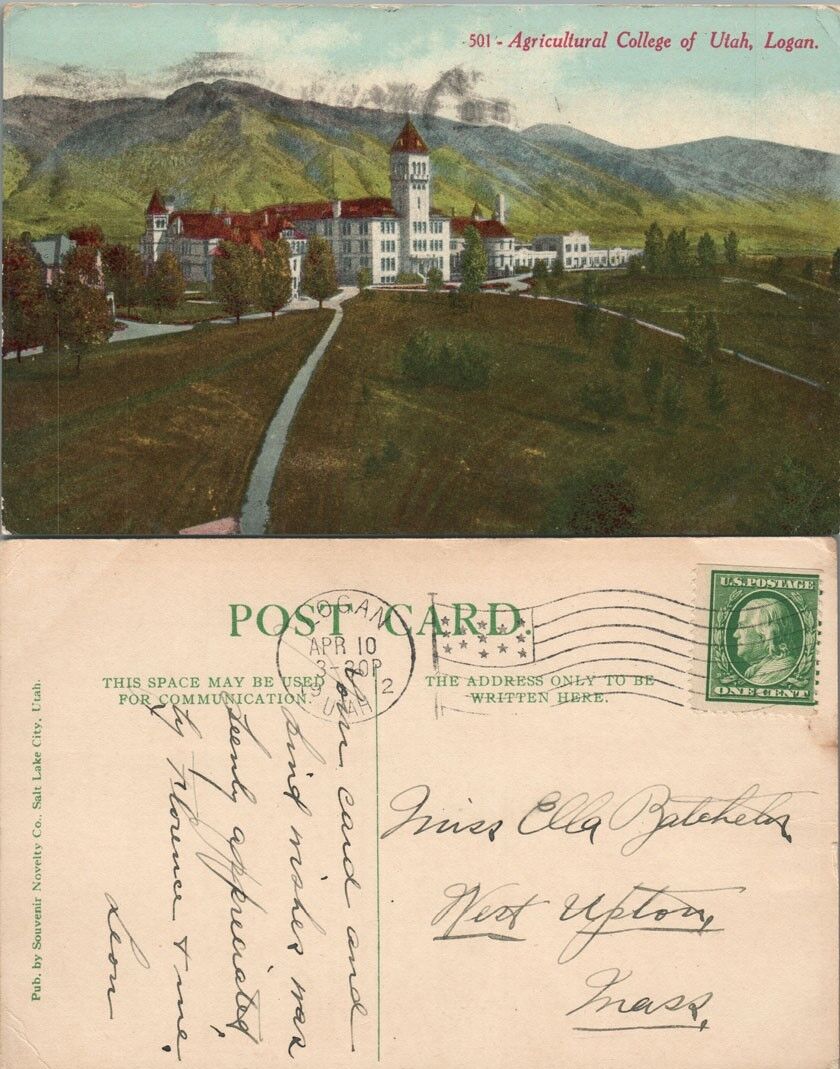 501 - Agricultural College of Utah, Logan.
POST CARD.
THIS SPACE MAY BE USED
FOR COMMUNICATION.
THE ADDRESS ONLY TO BE
WRITTEN HERE.
LOGAN
APR 10
3-30P
UTAH
U.S. POSTAGE
ONE CENT
Pub. by Souvenir Novelty Co., Salt Lake City, Utah.
Your card and
kind wishes was
keenly appreciated,
by Florence & me.
Leon
Miss Ella Batchelor
West Upton,
Mass.